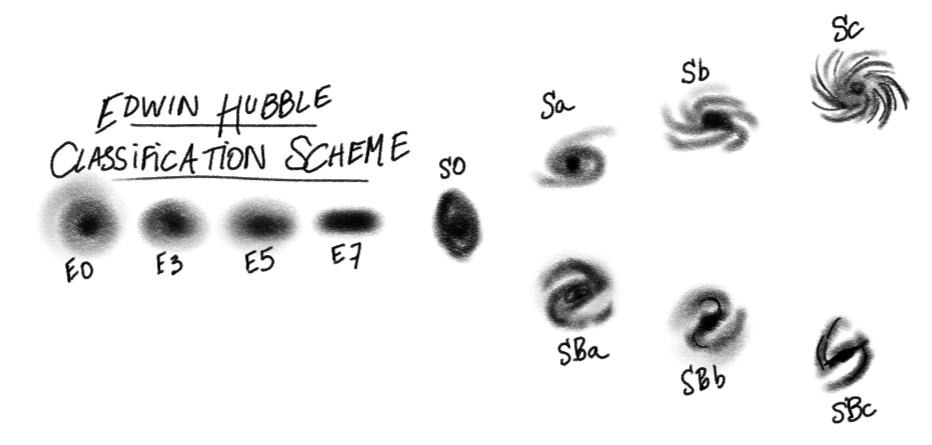 EDWIN HUBBLE
CLASSIFICATION SCHEME
E0
E3
E5
E7
S0
Sa
Sb
Sc
SBa
SBb
SBc